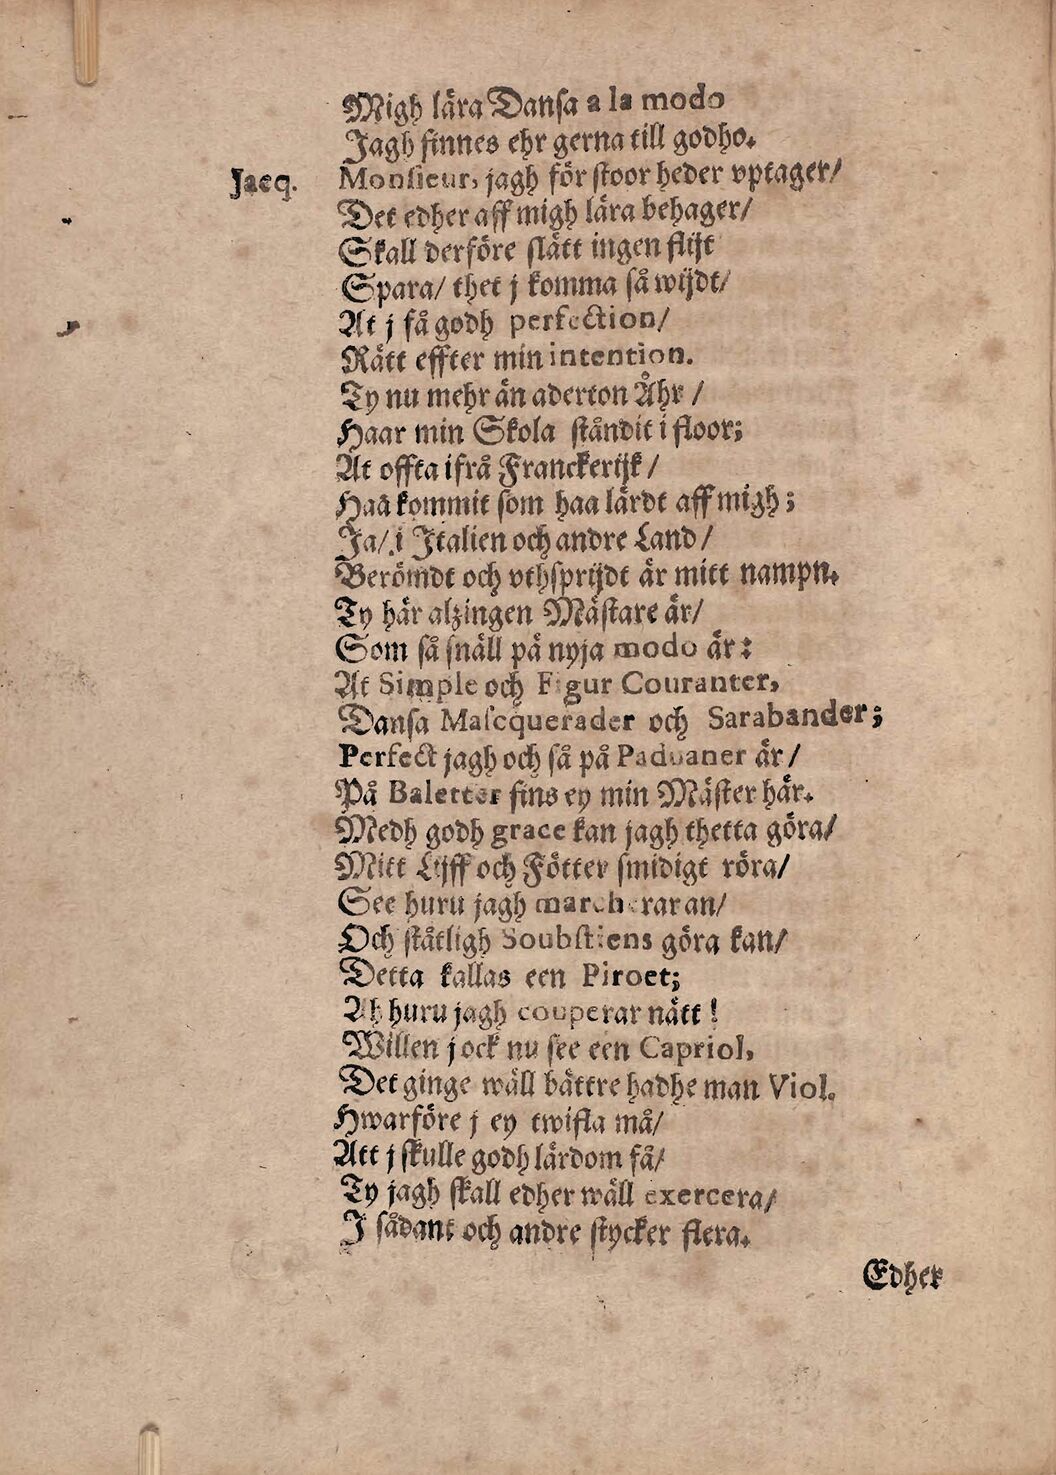 Migh lära Dansa a la modo
Jagh finnes ehr gerna till godho.
Jacq. Monsieur, jagh för stoor heder vptager/
Det edher aff migh lära behager/
Skall derföre slätt ingen flijt
Spara/ thet j komma så wijdt/
At j få godh perfection/
Rätt effter min intention.
Ty nu mehr än aderton Åhr /
Haar min Skola ståndit i floor;
At offta ifrå Franckerijk /
Haã kommit som haa lärdt aff migh;
Ja/ i Italien och andre Land /
Berömdt och vthsprijdt är mitt nampn.
Ty här alzingen Mästare är/
Som så snäll på nyja modo är:
At Simple och Figur Couranter,
Dansa Mascquerader och Sarabander;
Perfect jagh och så på Paduaner är/
På Baletter fins ey min Mäster här.
Medh godh grace kan jagh thetta göra/
Mitt Lijff och Fötter smidigt röra/
See huru jagh marcherar an/
Och ståtligh Soubstiens göra kan/
Detta kallas een Piroet;
Ah huru jagh couperar nätt!
Willen j ock nu see een Capriol,
Det ginge wäll bättre hadhe man Viol.
Hwarföre j ey twifla må/
Att j skulle godh lärdom få/
Ty jagh skall edher wäll exercera/
J sådant och andre stycker flera.
Edher